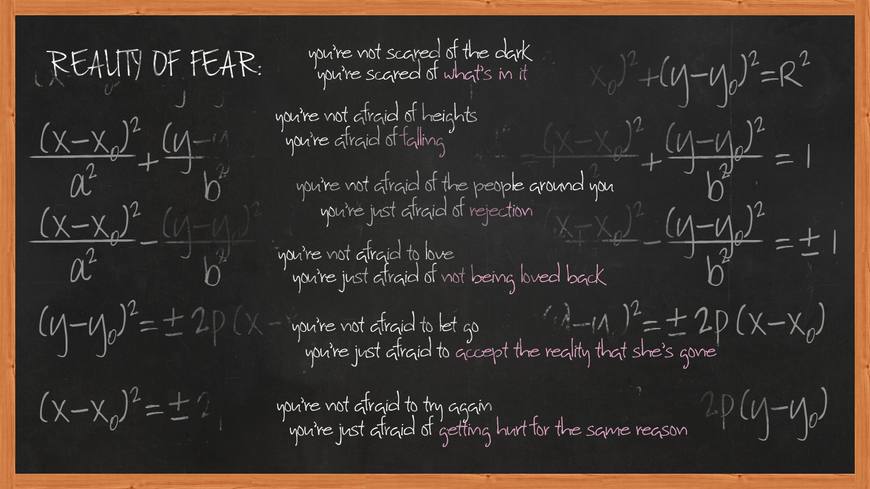 REALITY OF FEAR:
you're not scared of the dark
you're scared of what's in it
you're not afraid of heights
you're afraid of falling
you're not afraid of the people around you
you're just afraid of rejection
you're not afraid to love
you're just afraid of not being loved back
you're not afraid to let go
you're just afraid to accept the reality that she's gone
you're not afraid to try again
you're just afraid of getting hurt for the same reason
(x-x₀)²/a² + (y-
b²
(x-x₀)²/a² - (y-y₀)²/b²
(y-y₀)² = ± 2p (x-
(x-x₀)² = ± 2
x₀)² + (y-y₀)² = R²
(x-x₀)² + (y-y₀)²/b² = 1
(x-x₀)² - (y-y₀)²/b² = ± 1
)² = ± 2p (x-x₀)
2p (y-y₀)